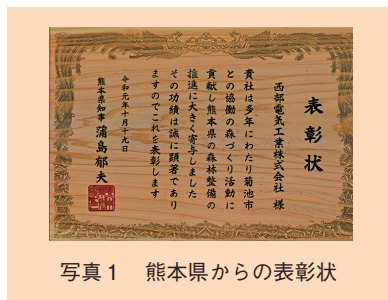 表彰状
西部電気工業株式会社 様
貴社は多年にわたり菊池市
との協働の森づくり活動に
貢献し熊本県の森林整備の
推進に大きく寄与しました
その功績は誠に顕著であり
ますのでこれを表彰します
令和元年十月十九日
熊本県知事 蒲島郁夫
写真1 熊本県からの表彰状